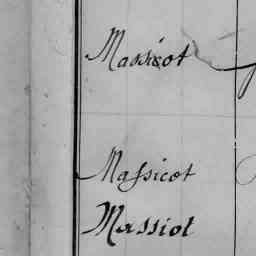 Massicot
Massicot
Massiot